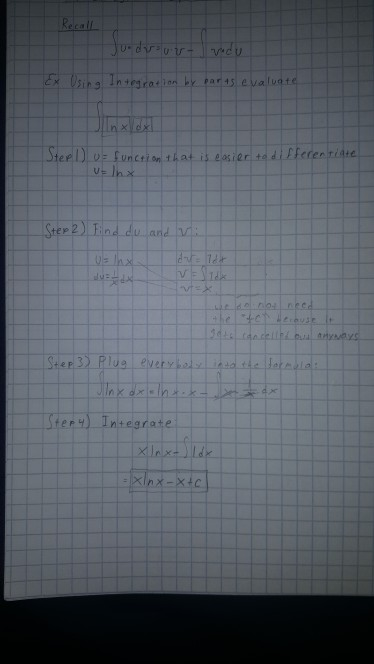 Recall
∫u·dv = u·v - ∫v·du
Ex Using Integration by parts evaluate
∫ln x dx
Step 1) u = function that is easier to differentiate
u = ln x
Step 2) Find du and v:
u = ln x dv = 1dx
du = 1/x dx v = ∫1dx
v = x
we do not need
the "+c" because it
gets cancelled out anyways
Step 3) Plug everybody into the formula:
∫ln x dx = ln x · x - ∫x · 1/x dx
Step 4) Integrate
x ln x - ∫1dx
= x ln x - x + c